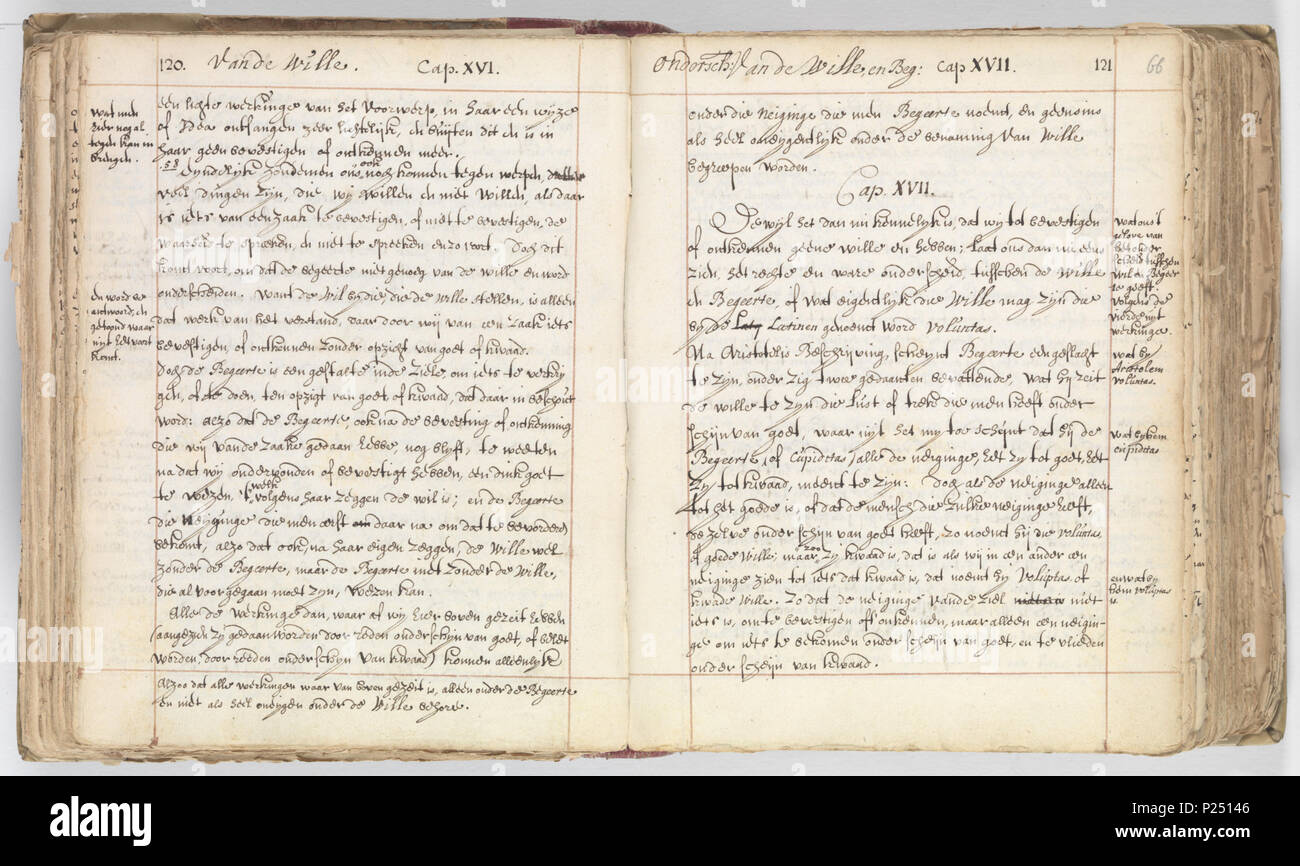 120. Van de Wille. Cap. XVI.
wat men
hier nog al
tegen kan in
brengen.
en word be
antwoord, en
getoond waar
uyt het voort
komt.
een lichte werkinge van het Voorwerp, in haar een wyze
of Idea ontfangen zeer lichtelyk, en buyten dit en is in
haar geen bevestigen of ontkennen meer.
§8 Eyndelyk zoude men ons ook nog konnen tegen werpen,
veel dingen zyn, die wy willen en niet willen, als daar
is iets van een zaak te bevestigen, of niet te bevestigen, de
waarheid te spreeken, en niet te spreeken enzovort. Dog dit
komt voort, om dat de begeerte niet genoeg van de wille en word
onderscheiden. Want de Wil by die die de Wille stellen, is alleen
dat werk van het verstand, daar door wij van een zaak iets
bevestigen, of ontkennen zonder opzicht van goet of kwaad.
Dog de Begeerte is een gestalte in de Ziele, om iets te verkry
gen, of te doen, ten opzigt van goet of kwaad, dat daar in beschout
word: alzo dat de Begeerte, ook na de bevesting of ontkenning
die wy van de zaake gedaan hebbe, nog blyft, te weeten
na dat wij ondervonden of bevestigt hebben, een dink goet
te wezen, welk volgens haar zeggen de wil is; en de Begeerte
die Neyginge die men eerst daar na om dat te bevorderen
bekomt, alzo dat ook, na haar eigen zeggen, de Wille wel
zonder de Begeerte, maar de Begeerte niet zonder de Wille,
die al voor gegaan moet zyn, wezen kan.
Alle de werkinge dan, waar af wy hier boven gezeit hebben
(aangezien zy gedaan worden door reden onder schyn van goet, of belet
worden, door reeden onder schyn van kwaad) konnen alleenlyk
Alzoo dat alle werkingen waar van boven gezeit is, alleen onder de Begeerte
en niet als heel oneygen onder de Wille behore.
Ondersch: Van de Wille, en Beg: Cap XVII. 121 66
onder die Neiginge die men Begeerte noemt, en geensins
als heel oneygentlyk onder de benaming van Wille
begreepen worden.
Cap. XVII.
Dewyl het dan nu kennelyk is, dat wy tot bevestigen
of ontkennen geene wille en hebben; laat ons dan nu eens
zien, het rechte en ware onderscheid, tusschen de Wille
en Begeerte, of wat eigentlyk die Wille mag zyn die
by de Latinen genoemt word Voluntas.
Na Aristotelis Beschryving, scheynt Begeerte een geslacht
te zyn, onder zig twee gedaanten bevattende, want hy zeit
de wille te zyn die Lust of trek die men heeft onder
schyn van goet, waar uyt het my toe schynt dat hy de
Begeerte (of cupiditas) alle de neiginge, het zy tot goet, het
zy tot kwaad, meent te zyn: Dog als de neiginge alleen
tot het goede is, of dat de mensch die zulke neiginge heeft,
de zelve onder schyn van goet heeft, zo noemt hy die voluntas,
of goede Wille; maar zoo zy kwaad is, dat is als wij in een ander een
neiginge zien tot iets dat kwaad is, dat noemt hy Voluptas of
kwade Wille. Zo dat de neiginge van de ziel niet
iets is, om te bevestigen off ontkennen, maar alleen een neigin-
ge om iets te bekomen onder schyn van goet, en te vlieden
onder schyn van kwaad.
wat ons 't
gelove van
het onder
scheid tusschen
wil en Begeer
te geeft.
volgens de
vierde uyt
werkinge.
wat by
Aristotelem
voluntas.
wat by hem
cupiditas
en wat by
hem voluptas
is.